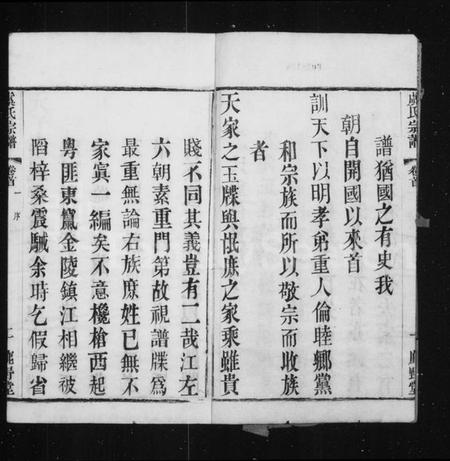 譜猶國之有史我
朝自開國以來首
訓天下以明孝弟重人倫睦鄉黨
和宗族而所以敬宗而收族
者
天家之玉牒與氓庶之家乘雖貴
賤不同其義豈有二哉江左
六朝素重門第故視譜牒為
最重無論右族庶姓已無不
家寘一編矣不意欃槍西起
粵匪東竄金陵鎮江相繼被
陷梓桑震駴余時乞假歸省
虞氏宗譜
卷首
一
序
一
鹿野堂